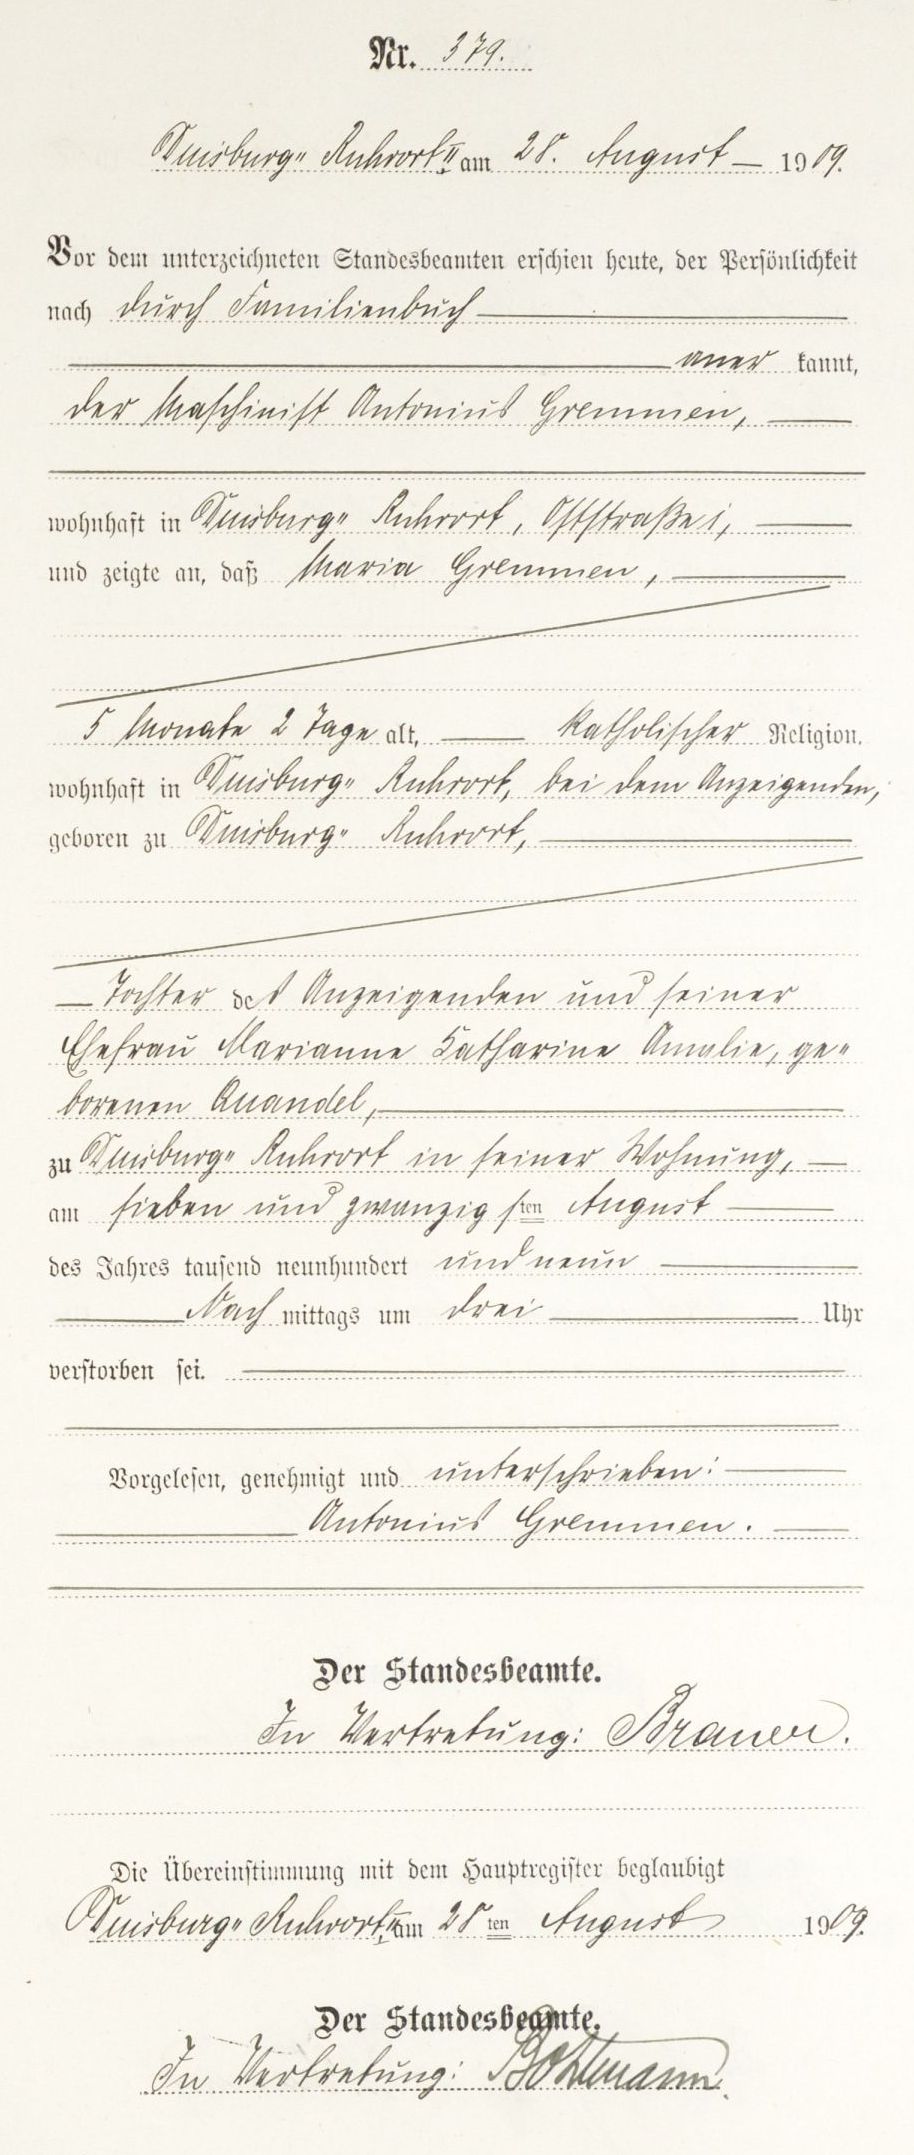 Nr. 379.
Duisburg-Ruhrort II am 28. August 1909.
Vor dem unterzeichneten Standesbeamten erschien heute, der Persönlichkeit
nach durch Familienbuch
anerkannt,
der Maschinist Antonius Gremmen,
wohnhaft in Duisburg-Ruhrort, Oststraße 1,
und zeigte an, daß Maria Gremmen,
5 Monate 2 Tage alt, katholischer Religion,
wohnhaft in Duisburg-Ruhrort, bei dem Anzeigenden,
geboren zu Duisburg-Ruhrort,
Tochter des Anzeigenden und seiner
Ehefrau Marianne Katharine Amalie, ge-
borenen Quandel,
zu Duisburg-Ruhrort in seiner Wohnung,
am sieben und zwanzigsten August
des Jahres tausend neunhundert und neun
Nachmittags um drei Uhr
verstorben sei.
Vorgelesen, genehmigt und unterschrieben:
Antonius Gremmen.
Der Standesbeamte.
In Vertretung: Brauer.
Die Übereinstimmung mit dem Hauptregister beglaubigt
Duisburg-Ruhrort II am 28ten August 1909.
Der Standesbeamte.
In Vertretung: